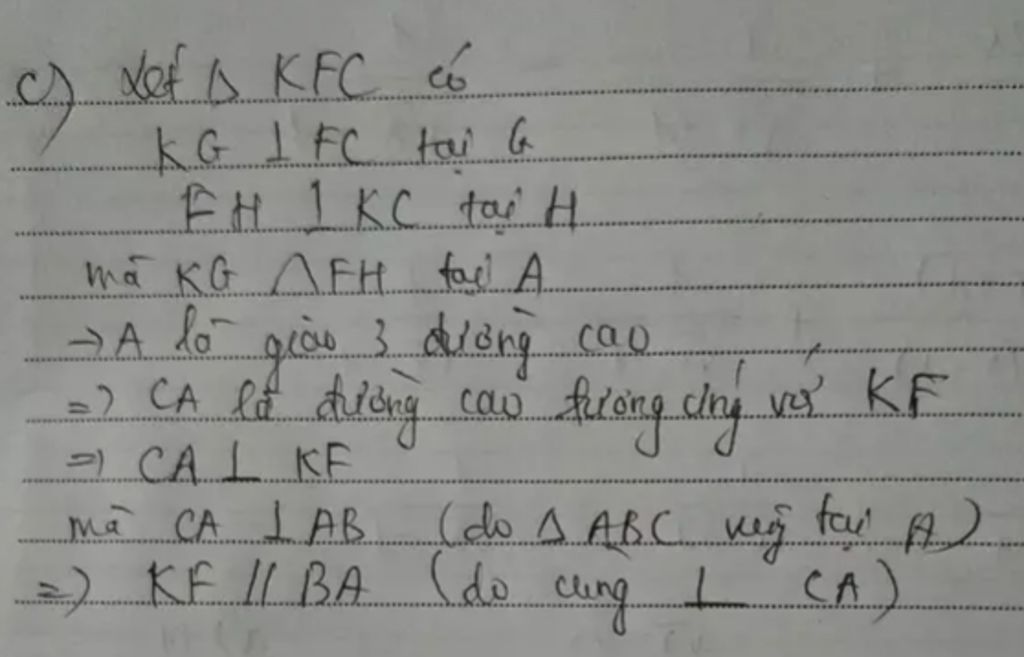 c) xét Δ KFC có
KG ⊥ FC tại G
FH ⊥ KC tại H
mà KG ∩ FH tại A
→ A là giao 3 đường cao
=> CA là đường cao tương ứng với KF
=> CA ⊥ KF
mà CA ⊥ AB (do Δ ABC vuông tại A)
=> KF // BA (do cùng ⊥ CA)